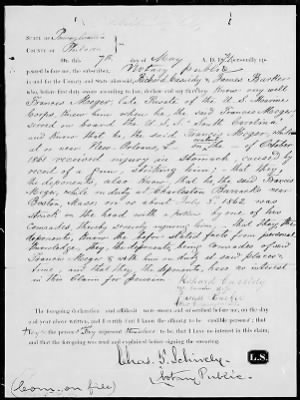 STATE OF Pennsylvania
COUNTY OF Philada
On this 7th day of May A. D. personally ap-
peared before me, the subscriber, Notary public
in and for the County and State aforesaid, Richard Cassidy & Francis Barker
who, before first duly sworn according to law, declare and say that they know very well
Francis Meeger, late Private of the U. S. Marine
Corps, knew him when he, the said Francis Meeger,
served on board the U. S. S. South Carolina;
and know that he, the said Francis Meeger, whilst
at or near New Orleans, L- on the - of October
1861 received injury in Stomach, caused by
recoil of a gun, striking him; that they,
the deponents, also know that he, the said Francis
Meeger, while on duty at Charlestown Barracks near
Boston, Mass: on or about July 3d 1862 was
struck on the head with a by one of his
Comrades, thereby severely injuring him, that they, the
deponents, knew the above stated facts from personal
knowledge, they, the deponents, being comrades of said
Francis Meeger & with him on duty at said places &
time, and that they, the deponents, have no interest
in this Claim for pension.
Richard Cassidy
Francis Barker
The foregoing declaration and affidavit were sworn to and subscribed before me, on the day
and year above written, and I certify that I know the affiants to be credible persons; that
they the person they represent themselves to be, that I have no interest in this claim, and
that the foregoing was read and explained before signing and swearing.
Chas. T. Shively.
Notary Public.
L.S.
(Com. on file)